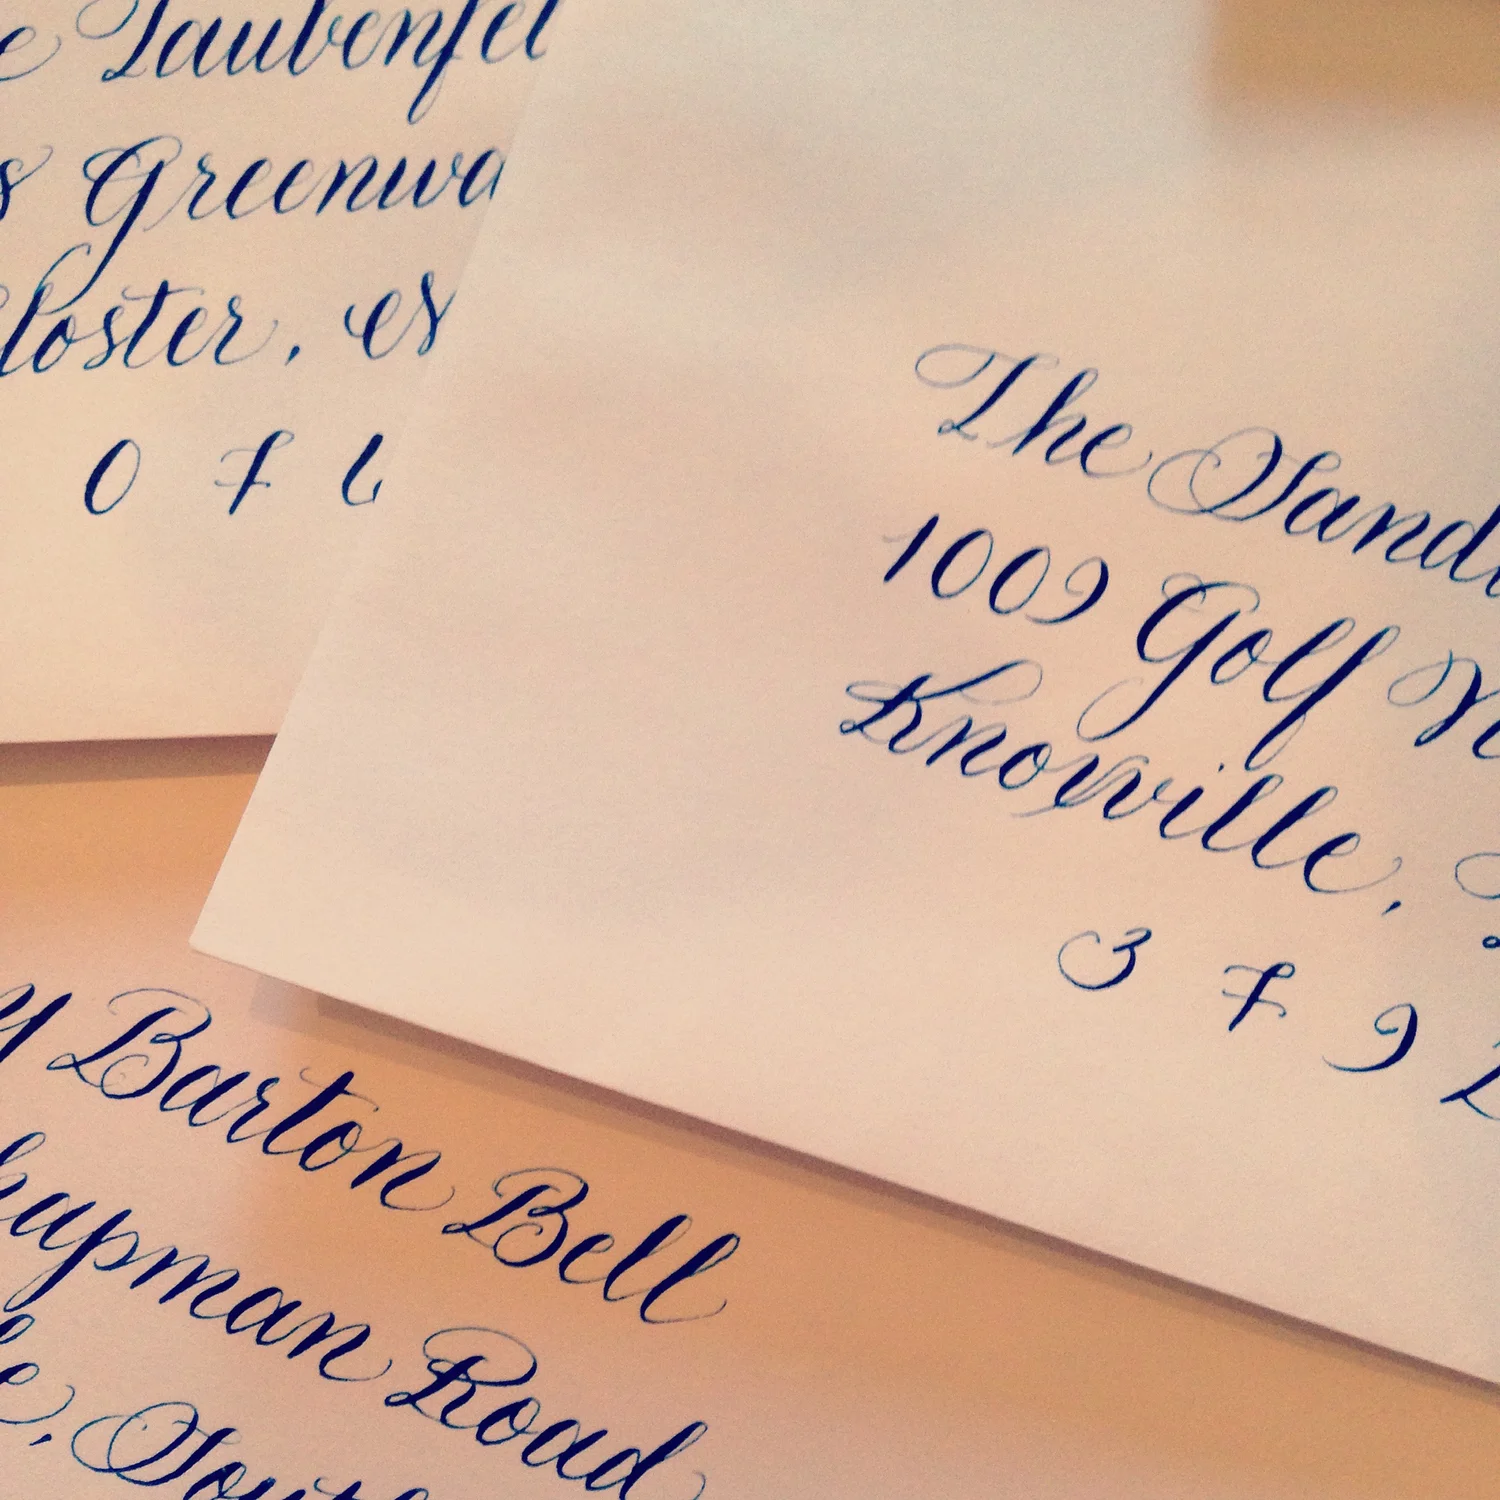 e Taubenfel
s Greenwa
loster, N
0 7 6
The Sand
1009 Golf
Knoxville,
3 7 9 2
y Barton Bell
hapman Road
le, South